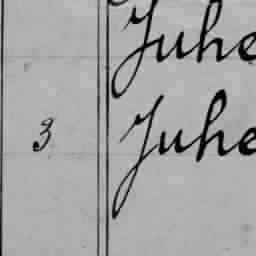 Juhe
3 Juhe